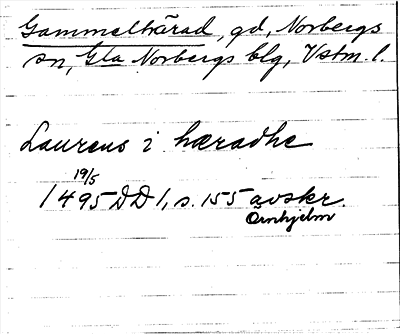 Gammelhärad, gd, Norbergs
sn, Gla Norbergs blg, Vstm. l.
Laurens i hæradhe
19/5
1495 DD 1, s. 155 avskr.
Örnhjelm